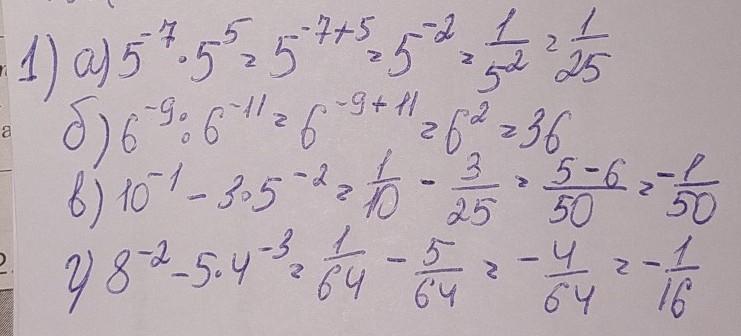 1) а) 5^-7 · 5^5 = 5^-7+5 = 5^-2 = 1/5^2 = 1/25
б) 6^-9 : 6^-11 = 6^-9+11 = 6^2 = 36
в) 10^-1 - 3·5^-2 = 1/10 - 3/25 = 5-6/50 = -1/50
г) 8^-2 - 5·4^-3 = 1/64 - 5/64 = -4/64 = -1/16